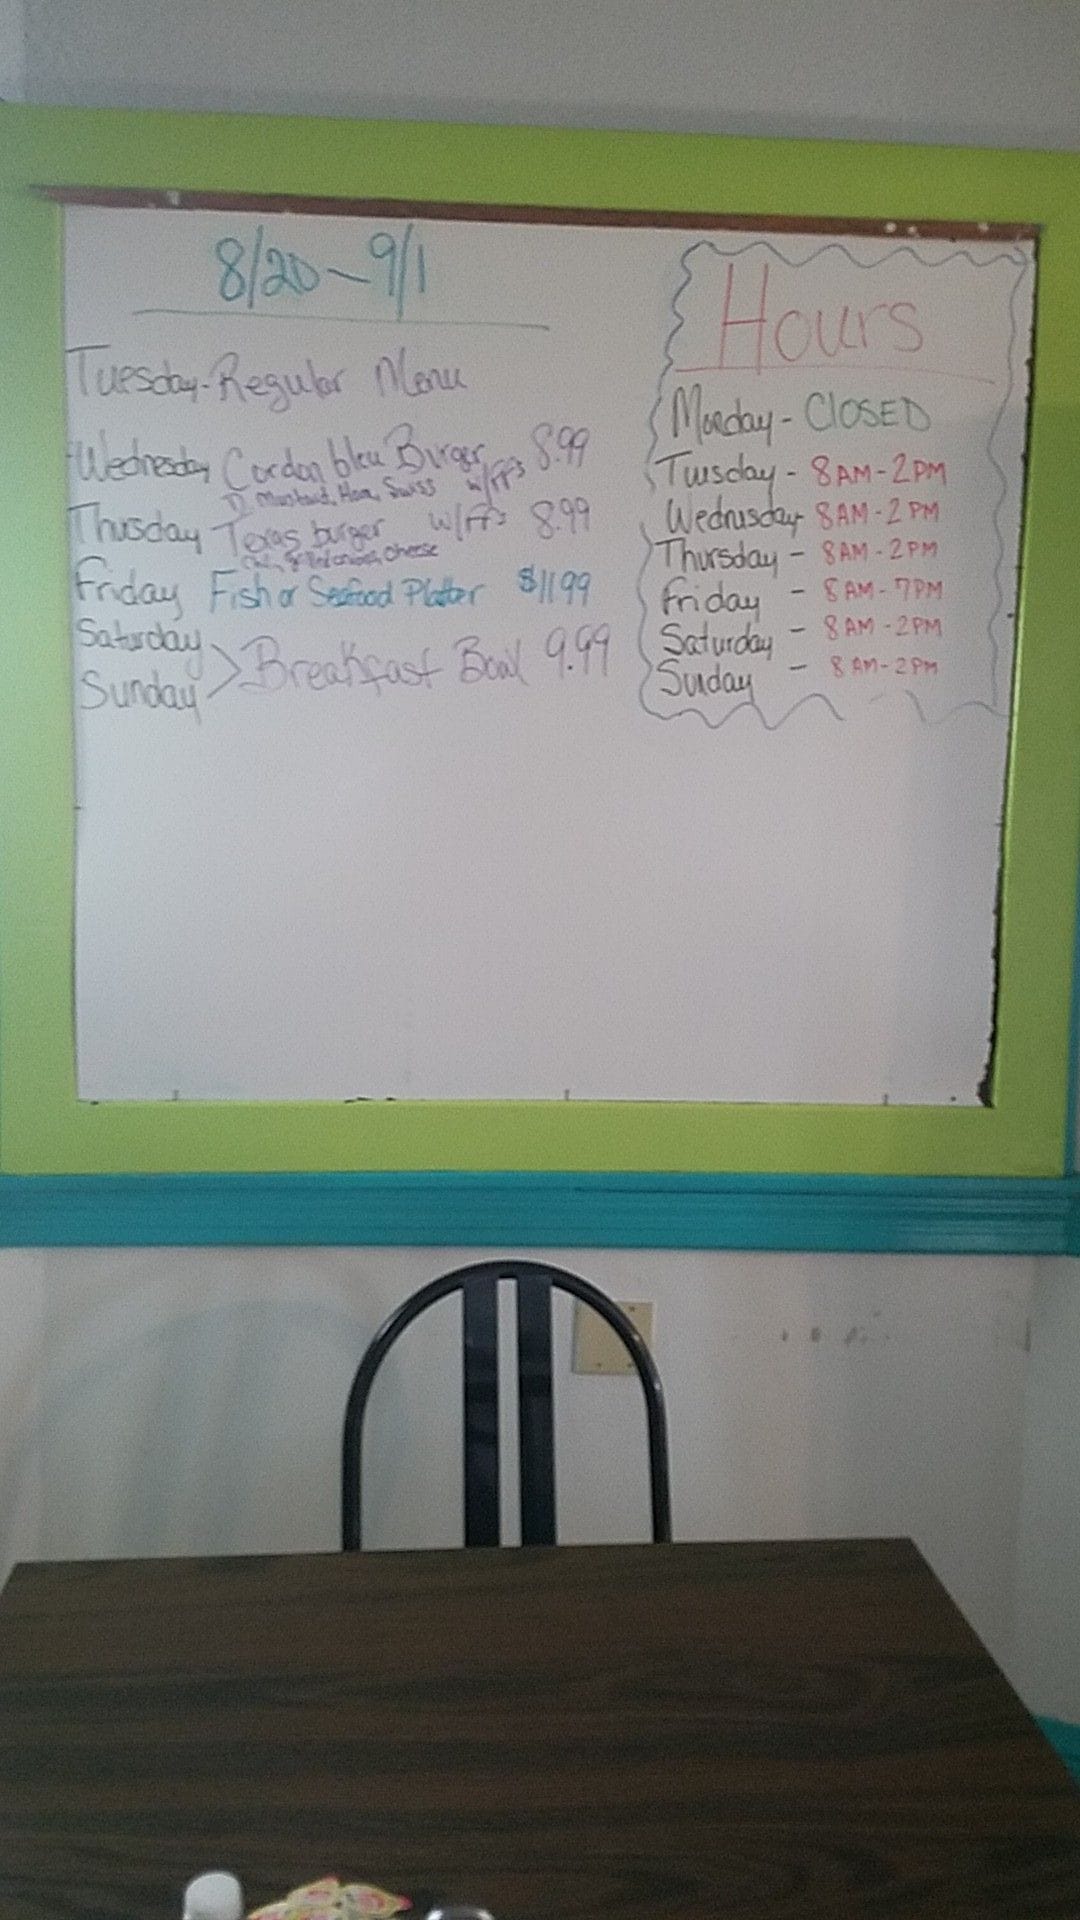 8/20 - 9/1
Tuesday - Regular Menu
Wednesday Cordon bleu Burger 8.99
D. Mustard, Ham, Swiss w/FF's
Thusday Texas burger w/FF's 8.99
Grilled onions, Cheese
Friday Fish or Seafood Platter $11.99
Saturday
Sunday > Breakfast Bowl 9.99
Hours
Monday - CLOSED
Tuesday - 8AM - 2PM
Wednesday 8AM - 2PM
Thursday - 8AM - 2PM
Friday - 8AM - 7PM
Saturday - 8AM - 2PM
Sunday - 8AM - 2PM